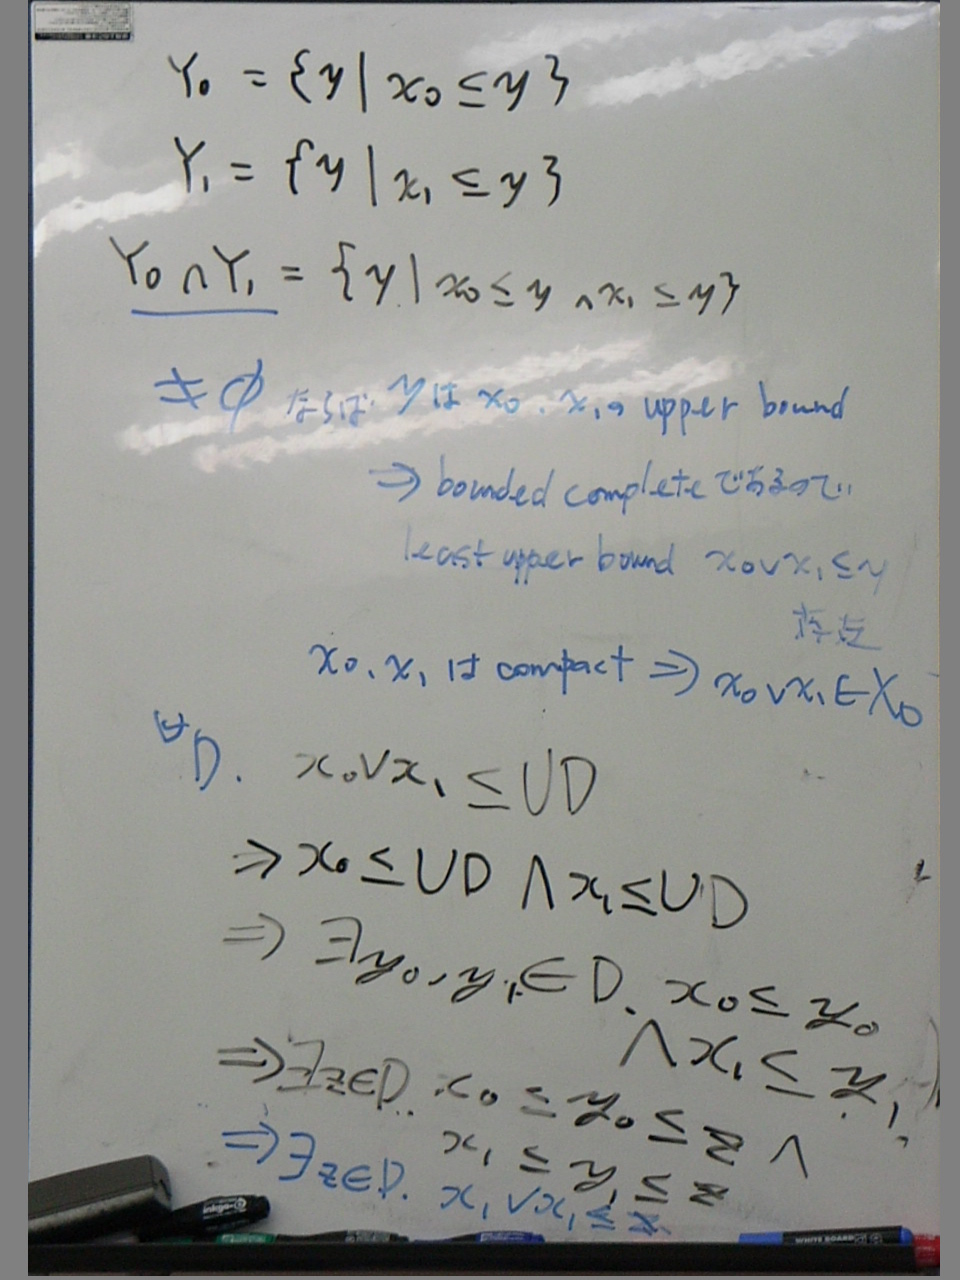 Y₀ = {y | x₀ ≤ y}
Y₁ = {y | x₁ ≤ y}
Y₀ ∩ Y₁ = {y | x₀ ≤ y ∧ x₁ ≤ y}
≠ ∅ ならば y は x₀, x₁の upper bound
⇒ bounded complete であるので
least upper bound x₀∨x₁≤y
存在
x₀, x₁ は compact ⇒ x₀∨x₁∈X₀
∀D. x₀∨x₁ ≤ ∪D
⇒ x₀ ≤ ∪D ∧ x₁ ≤ ∪D
⇒ ∃y₀, y₁ ∈ D. x₀ ≤ y₀
∧ x₁ ≤ y₁
⇒ ∃z∈D. x₀ ≤ y₀ ≤ z ∧
x₁ ≤ y₁ ≤ z
⇒ ∃z∈D. x₁∨x₁≤z
WHITE BOARD